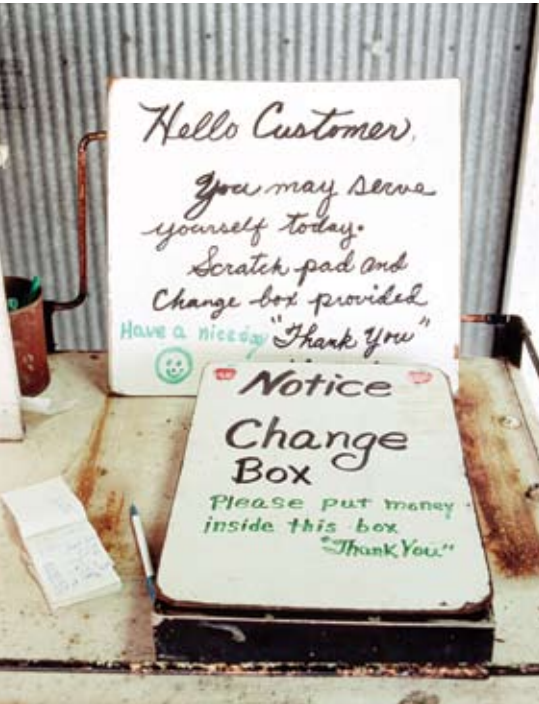 Hello Customer,
You may serve
yourself today.
Scratch pad and
Change box provided
Have a nice day "Thank You"
Notice
Change
Box
Please put money
inside this box
"Thank You"